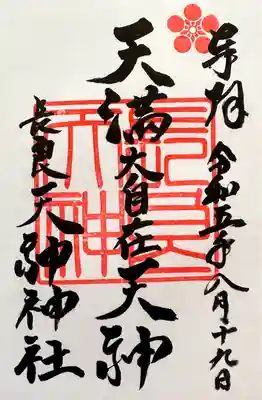 奉拝 令和五年八月十九日
天満大自在天神
長良天神神社
長良天神